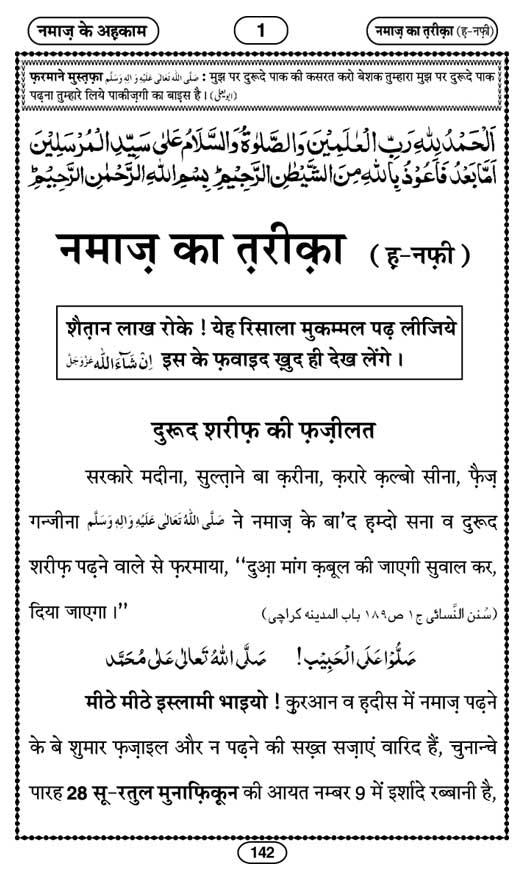 नमाज़ के अह़काम 1 नमाज़ का त़रीक़ा (ह़-नफ़ी)
फ़रमाने मुस्त़फ़ा صَلَّى اللّٰهُ تَعَالٰى عَلَيْهِ وَاٰلِهٖ وَسَلَّم : मुझ पर दुरूदे पाक की कसरत करो बेशक तुम्हारा मुझ पर दुरूदे पाक
पढ़ना तुम्हारे लिये पाकीज़गी का बाइस है । (ابو یعلٰی)
اَلْحَمْدُ لِلّٰهِ رَبِّ الْعٰلَمِيْنَ وَالصَّلٰوةُ وَالسَّلَامُ عَلٰى سَيِّدِ الْمُرْسَلِيْنَ
اَمَّا بَعْدُ فَاَعُوْذُ بِاللّٰهِ مِنَ الشَّيْطٰنِ الرَّجِيْمِ ؕ بِسْمِ اللّٰهِ الرَّحْمٰنِ الرَّحِيْمِ ؕ
नमाज़ का त़रीक़ा ( ह़-नफ़ी )
शैत़ान लाख रोके ! येह रिसाला मुकम्मल पढ़ लीजिये
اِنْ شَآءَاللّٰه عَزَّوَجَلَّ इस के फ़वाइद ख़ुद ही देख लेंगे ।
दुरूद शरीफ़ की फ़ज़ीलत
सरकारे मदीना, सुल्त़ाने बा क़रीना, क़रारे क़ल्बो सीना, फ़ैज़
गन्जीना صَلَّى اللّٰهُ تَعَالٰى عَلَيْهِ وَاٰلِهٖ وَسَلَّم ने नमाज़ के बा'द ह़म्दो सना व दुरूद
शरीफ़ पढ़ने वाले से फ़रमाया, ‘‘दुआ़ मांग क़बूल की जाएगी सुवाल कर,
दिया जाएगा ।’’ (سُنن النَّسائی ج١ ص١٨٩ باب المدینه کراچی)
صَلُّوْا عَلَى الْحَبِيْب! صَلَّى اللّٰهُ تَعَالٰى عَلٰى مُحَمَّد
मीठे मीठे इस्लामी भाइयो ! क़ुरआन व ह़दीस में नमाज़ पढ़ने
के बे शुमार फ़ज़ाइल और न पढ़ने की सख़्त सज़ाएं वारिद हैं, चुनान्चे
पारह 28 सू-रतुल मुनाफ़िक़ून की आयत नम्बर 9 में इर्शादे रब्बानी है,
142